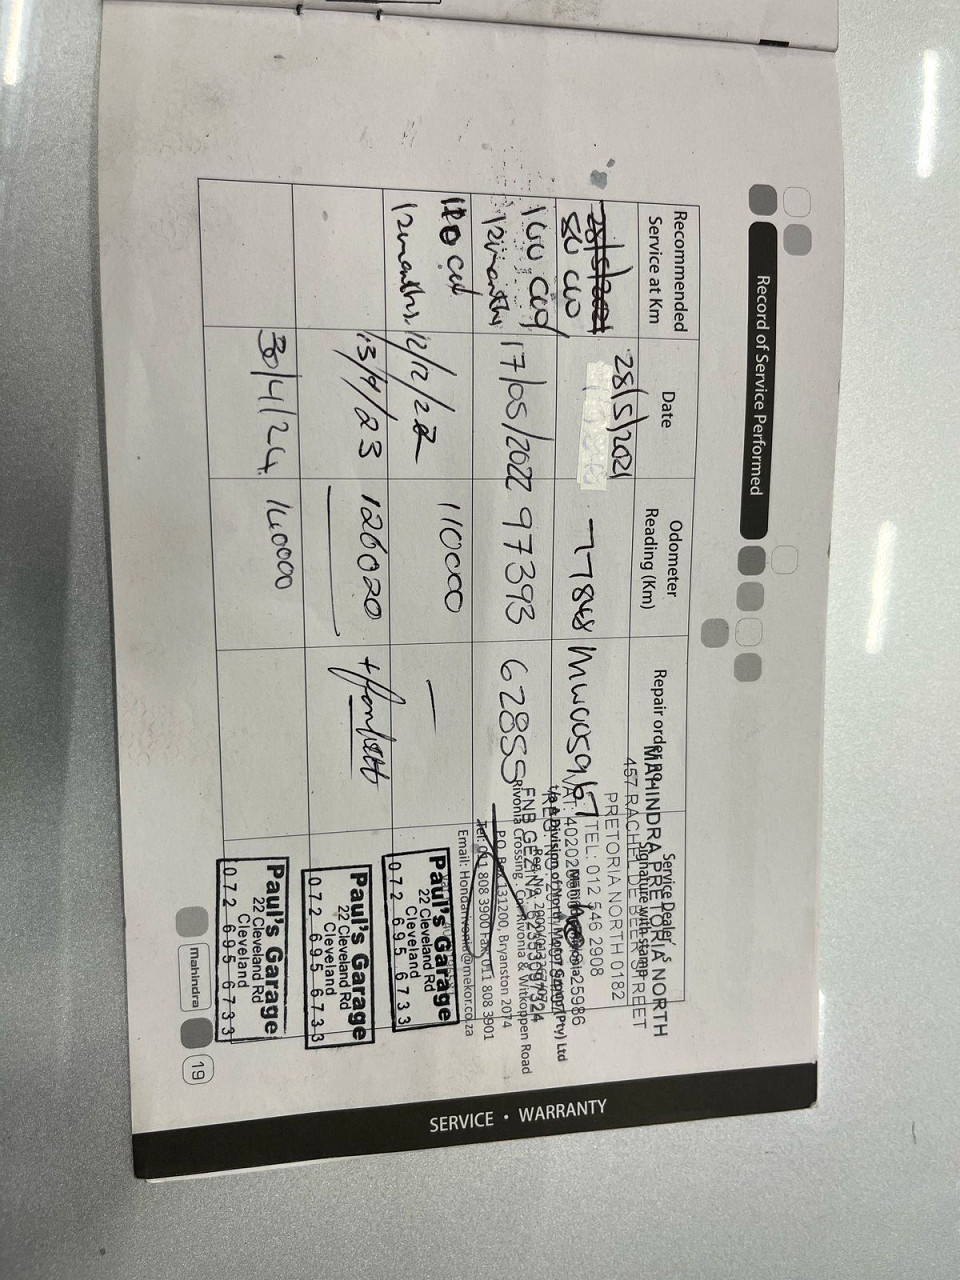 Record of Service Performed
Recommended
Service at Km
Date
Odometer
Reading (Km)
Repair order no.
Service Dealer's
Signature with stamp
28/5/2021
28/5/2021
77848
MAHINDRA PRETORIA NORTH
457 RACHEL DE BEER STREET
PRETORIA NORTH 0182
TEL: 012 546 2908
FNB GEZINA
12 months
17/05/2022
97393
62855
t/a A Division of North Motor Group (Pty) Ltd
Rivonia Crossing, Cnr Rivonia & Witkoppen Road
P.O. Box 131200, Bryanston 2074
Tel: 011 808 3900 Fax: 011 808 3901
Email: Hondarivonia@mekor.co.za
12 months
110000
—
Paul's Garage
22 Cleveland Rd
Cleveland
072 695 6733
13/4/23
126020
Paul's Garage
22 Cleveland Rd
Cleveland
072 695 6733
30/4/24
140000
Paul's Garage
22 Cleveland Rd
Cleveland
072 695 6733
mahindra
19
SERVICE • WARRANTY